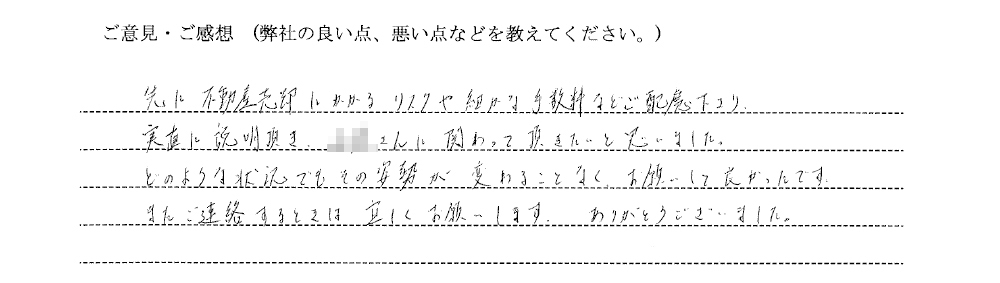 ご意見・ご感想　(弊社の良い点、悪い点などを教えてください。)
先に 不動産売却にかかる リスクや細かな手数料などご配慮下さり、
実直に説明頂き、 さんに関わって頂きたいと思いました。
どのような状況でもその姿勢が 変わることなく、お願いして良かったです。
またご連絡するときは 宜しくお願いします。 ありがとうございました。